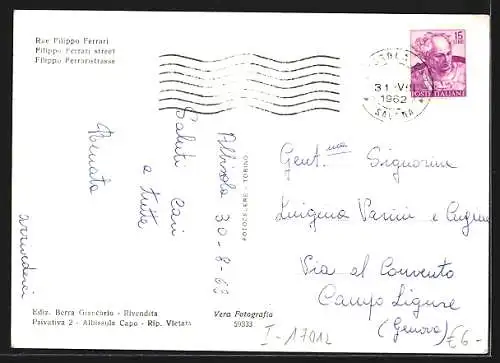 Rue Filippo Ferrari
Filippo Ferrari street
Filippo Ferraristrasse
15
LIRE
POSTE ITALIANE
31-V
1962
Albisola 30-8-62
Saluti cari
a tutte
Renata
arrivederci
FOTOCELERE - TORINO
Gent.me Signorine
Luigina Vanni e
Via al Convento
Campo Ligure
(Genova)
Ediz. Berra Giancarlo - Rivendita
Privativa 2 - Albissola Capo - Rip. Vietata
Vera Fotografia
59333
I-17012
€6-